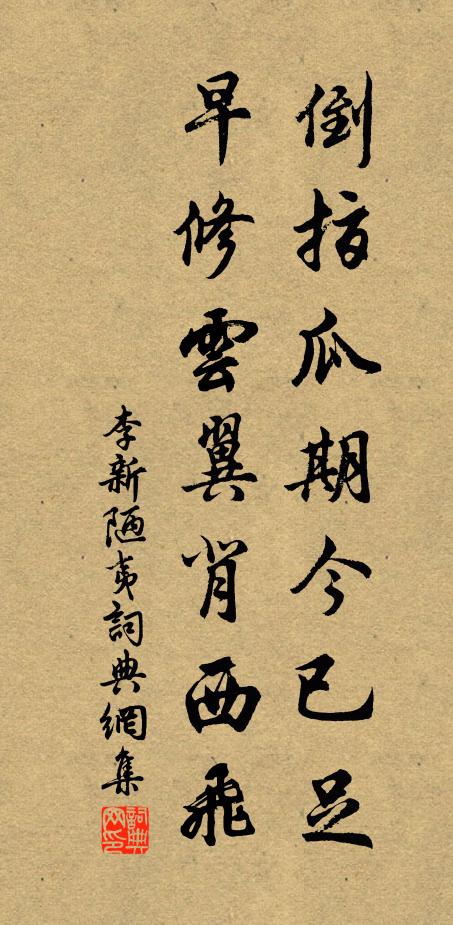 倒指瓜期今已足
早修雲翼背西飛
李新陋夷詞典網集
詞典网印